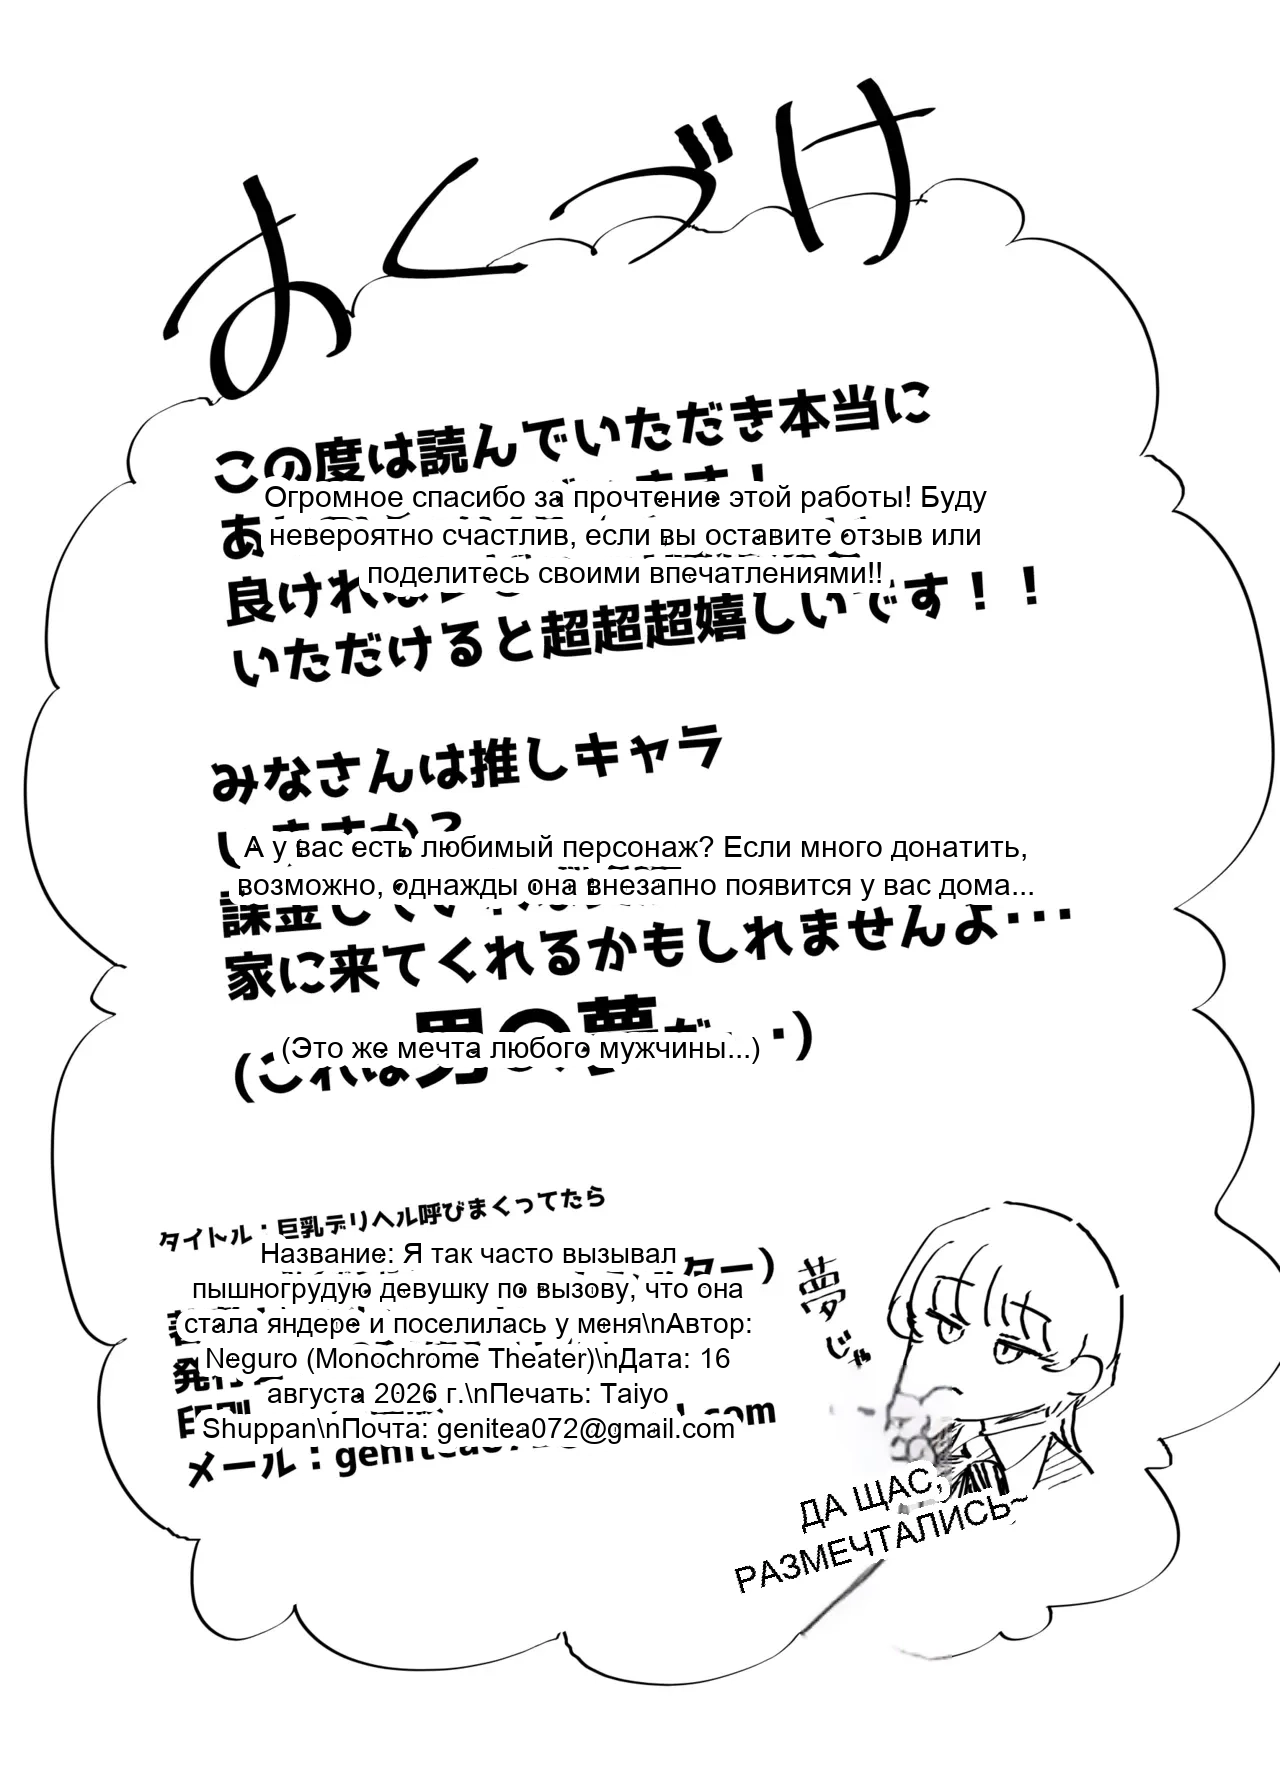 おくづけ
この度は読んでいただき本当に
Огромное спасибо за прочтение этой работы! Буду
невероятно счастлив, если вы оставите отзыв или
поделитесь своими впечатлениями!!
良ければ
いただけると超超超嬉しいです！！
みなさんは推しキャラ
しますか？
А у вас есть любимый персонаж? Если много донатить,
возможно, однажды она внезапно появится у вас дома...
家に来てくれるかもしれませんよ･･･
(Это же мечта любого мужчины...)
(これは男の夢だ･･)
タイトル：巨乳デリヘル呼びまくってたら
Название: Я так часто вызывал
пышногрудую девушку по вызову, что она
стала яндере и поселилась у меня\nАвтор:
Neguro (Monochrome Theater)\nДата: 16
августа 2026 г.\nПечать: Taiyo
Shuppan\nПочта: genitea072@gmail.com
メール：
夢
じゃ
ДА ЩАС,
РАЗМЕЧТАЛИСЬ~